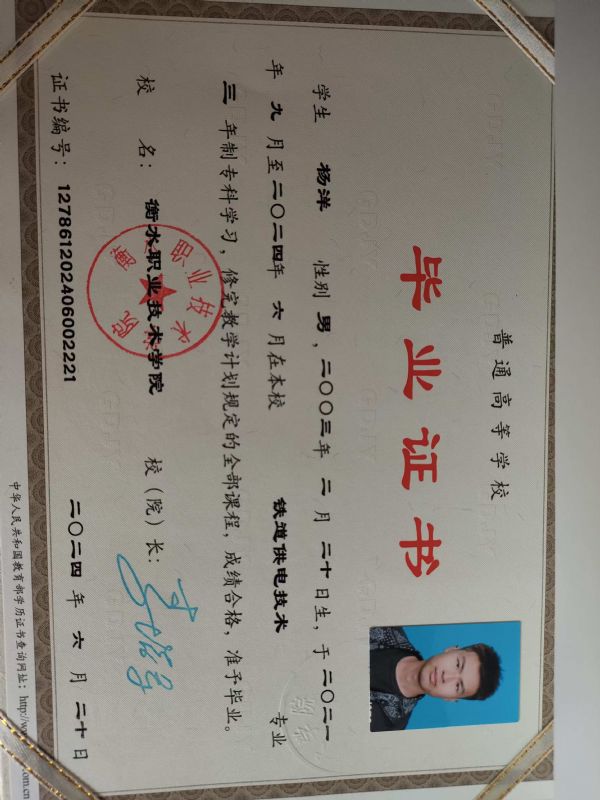 普通高等学校
毕业证书
学生 杨洋 性别 男，二〇〇三年 二 月 二十日生，于 二〇二一
年 九 月至 二〇二四年 六 月在本校 铁道供电技术 专业
三 年制专科学习，修完教学计划规定的全部课程，成绩合格，准予毕业。
校 名：衡水职业技术学院 校（院）长：
证书编号：127861202406002221 二〇二四 年 六 月 二十日
中华人民共和国教育部学历证书查询网址：http://w
om.cn